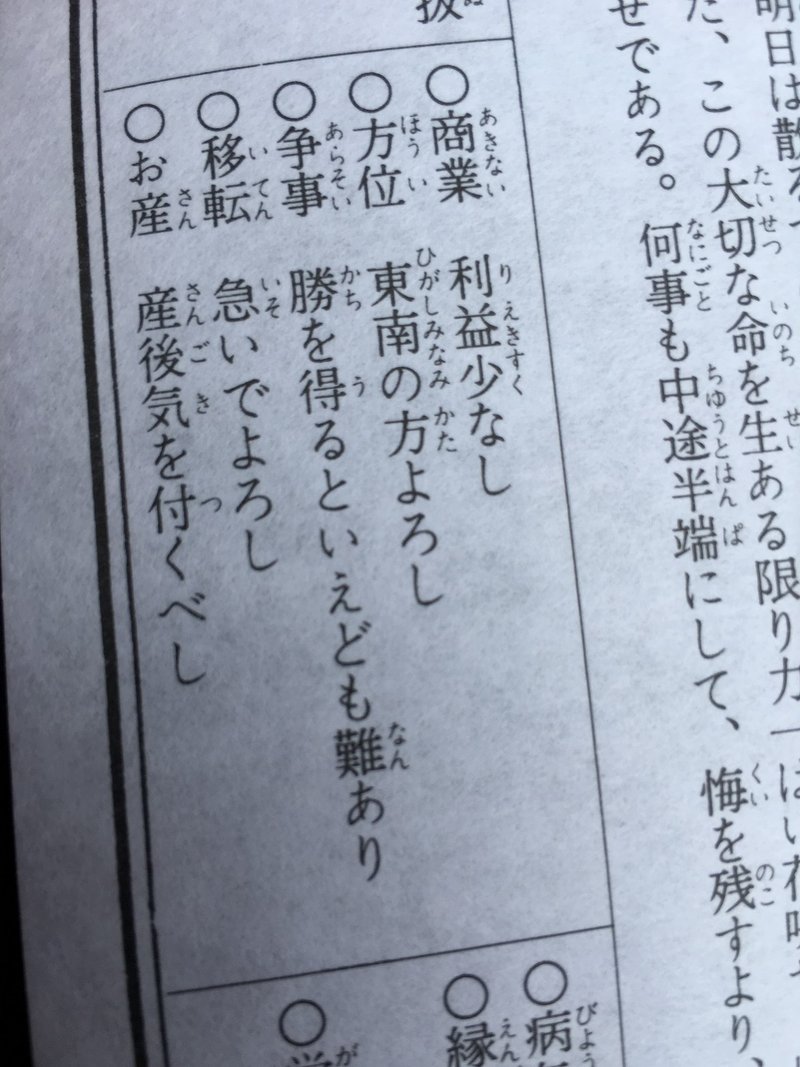 明日は散る
た、この大切な命を生ある限り力一ぱい花咲
せである。何事も中途半端にして、悔を残すより、
○商業 利益少なし
○方位 東南の方よろし
○争事 勝を得るといえども難あり
○移転 急いでよろし
○お産 産後気を付くべし
○病
○縁
○